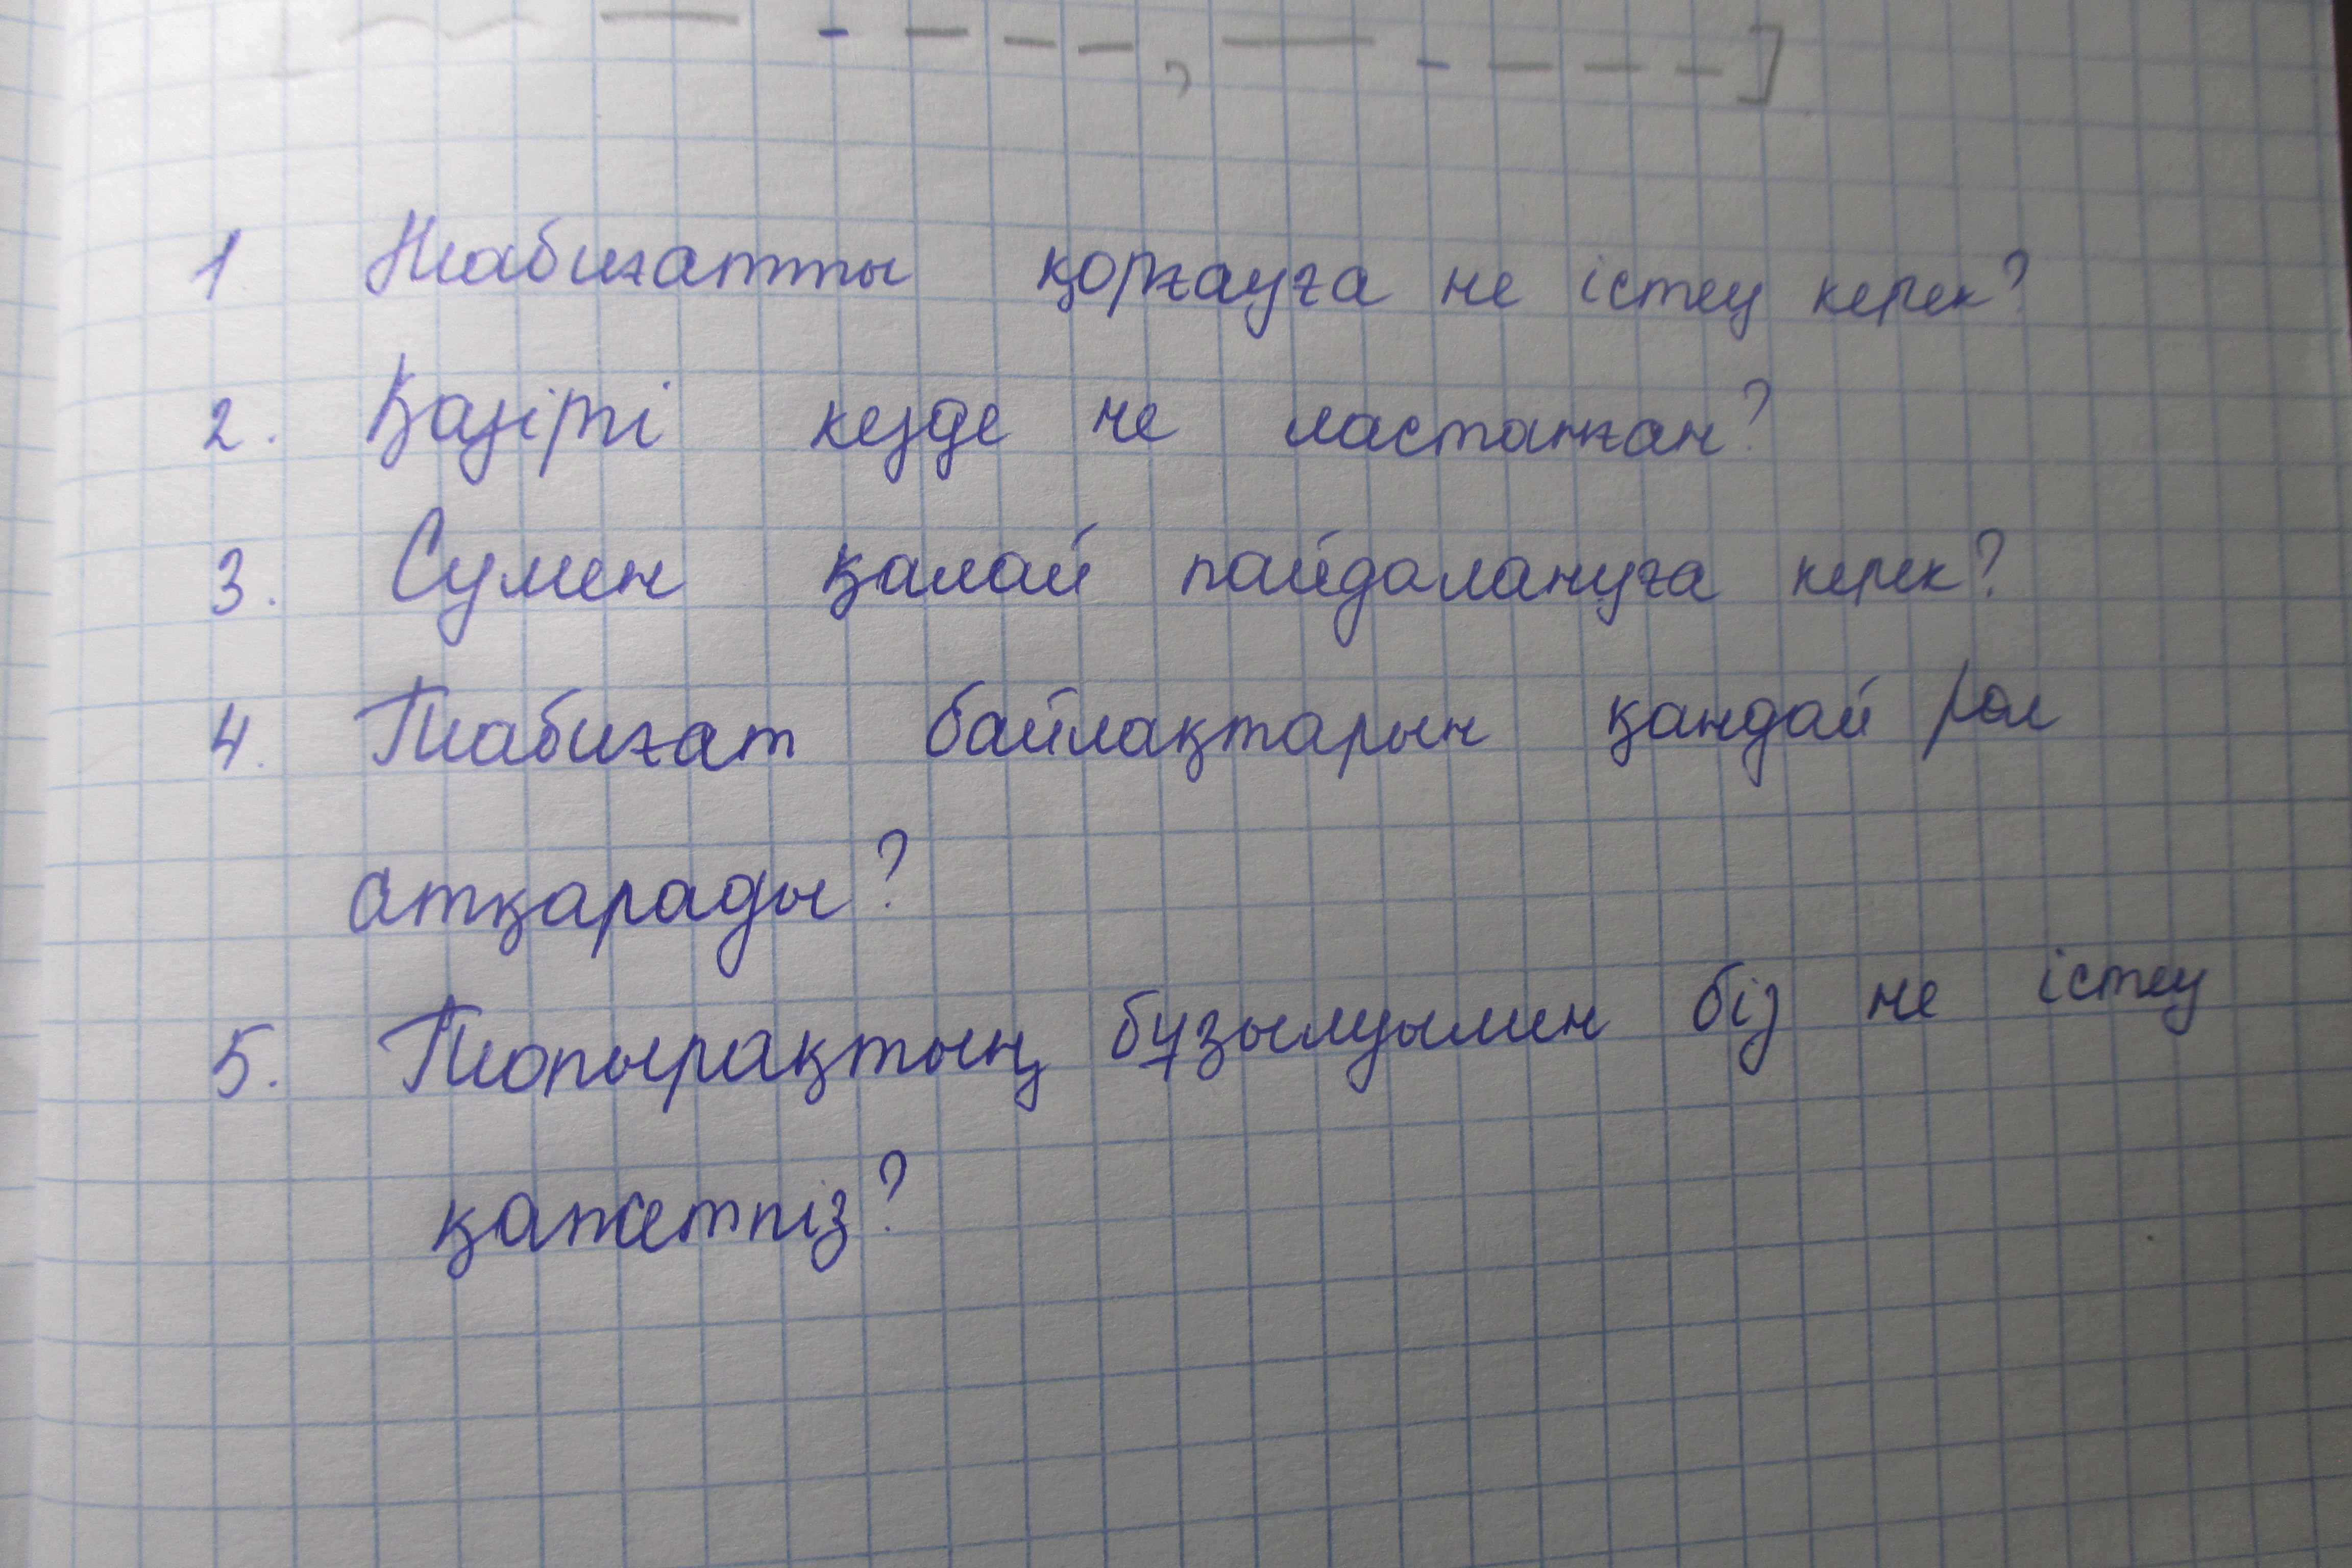 1. Табиғатты қорғауға не істеу керек?
2. Қазіргі кезде не ластанған?
3. Сумен қалай пайдалануға керек?
4. Табиғат байлақтарын қандай рол
атқарады?
5. Топырақтың бұзылуымен біз не істеу
қажетпіз?